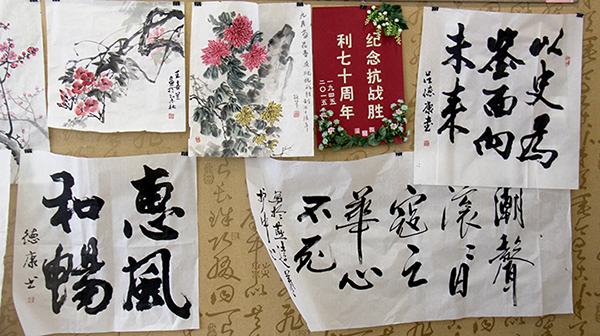 以史為
鉴面向
未来
吕德康书
纪念抗战胜
利七十周年
一九四五
二〇一五
惠風
和暢
德康书
潮聲
滚々日
寇亡
華心
不死